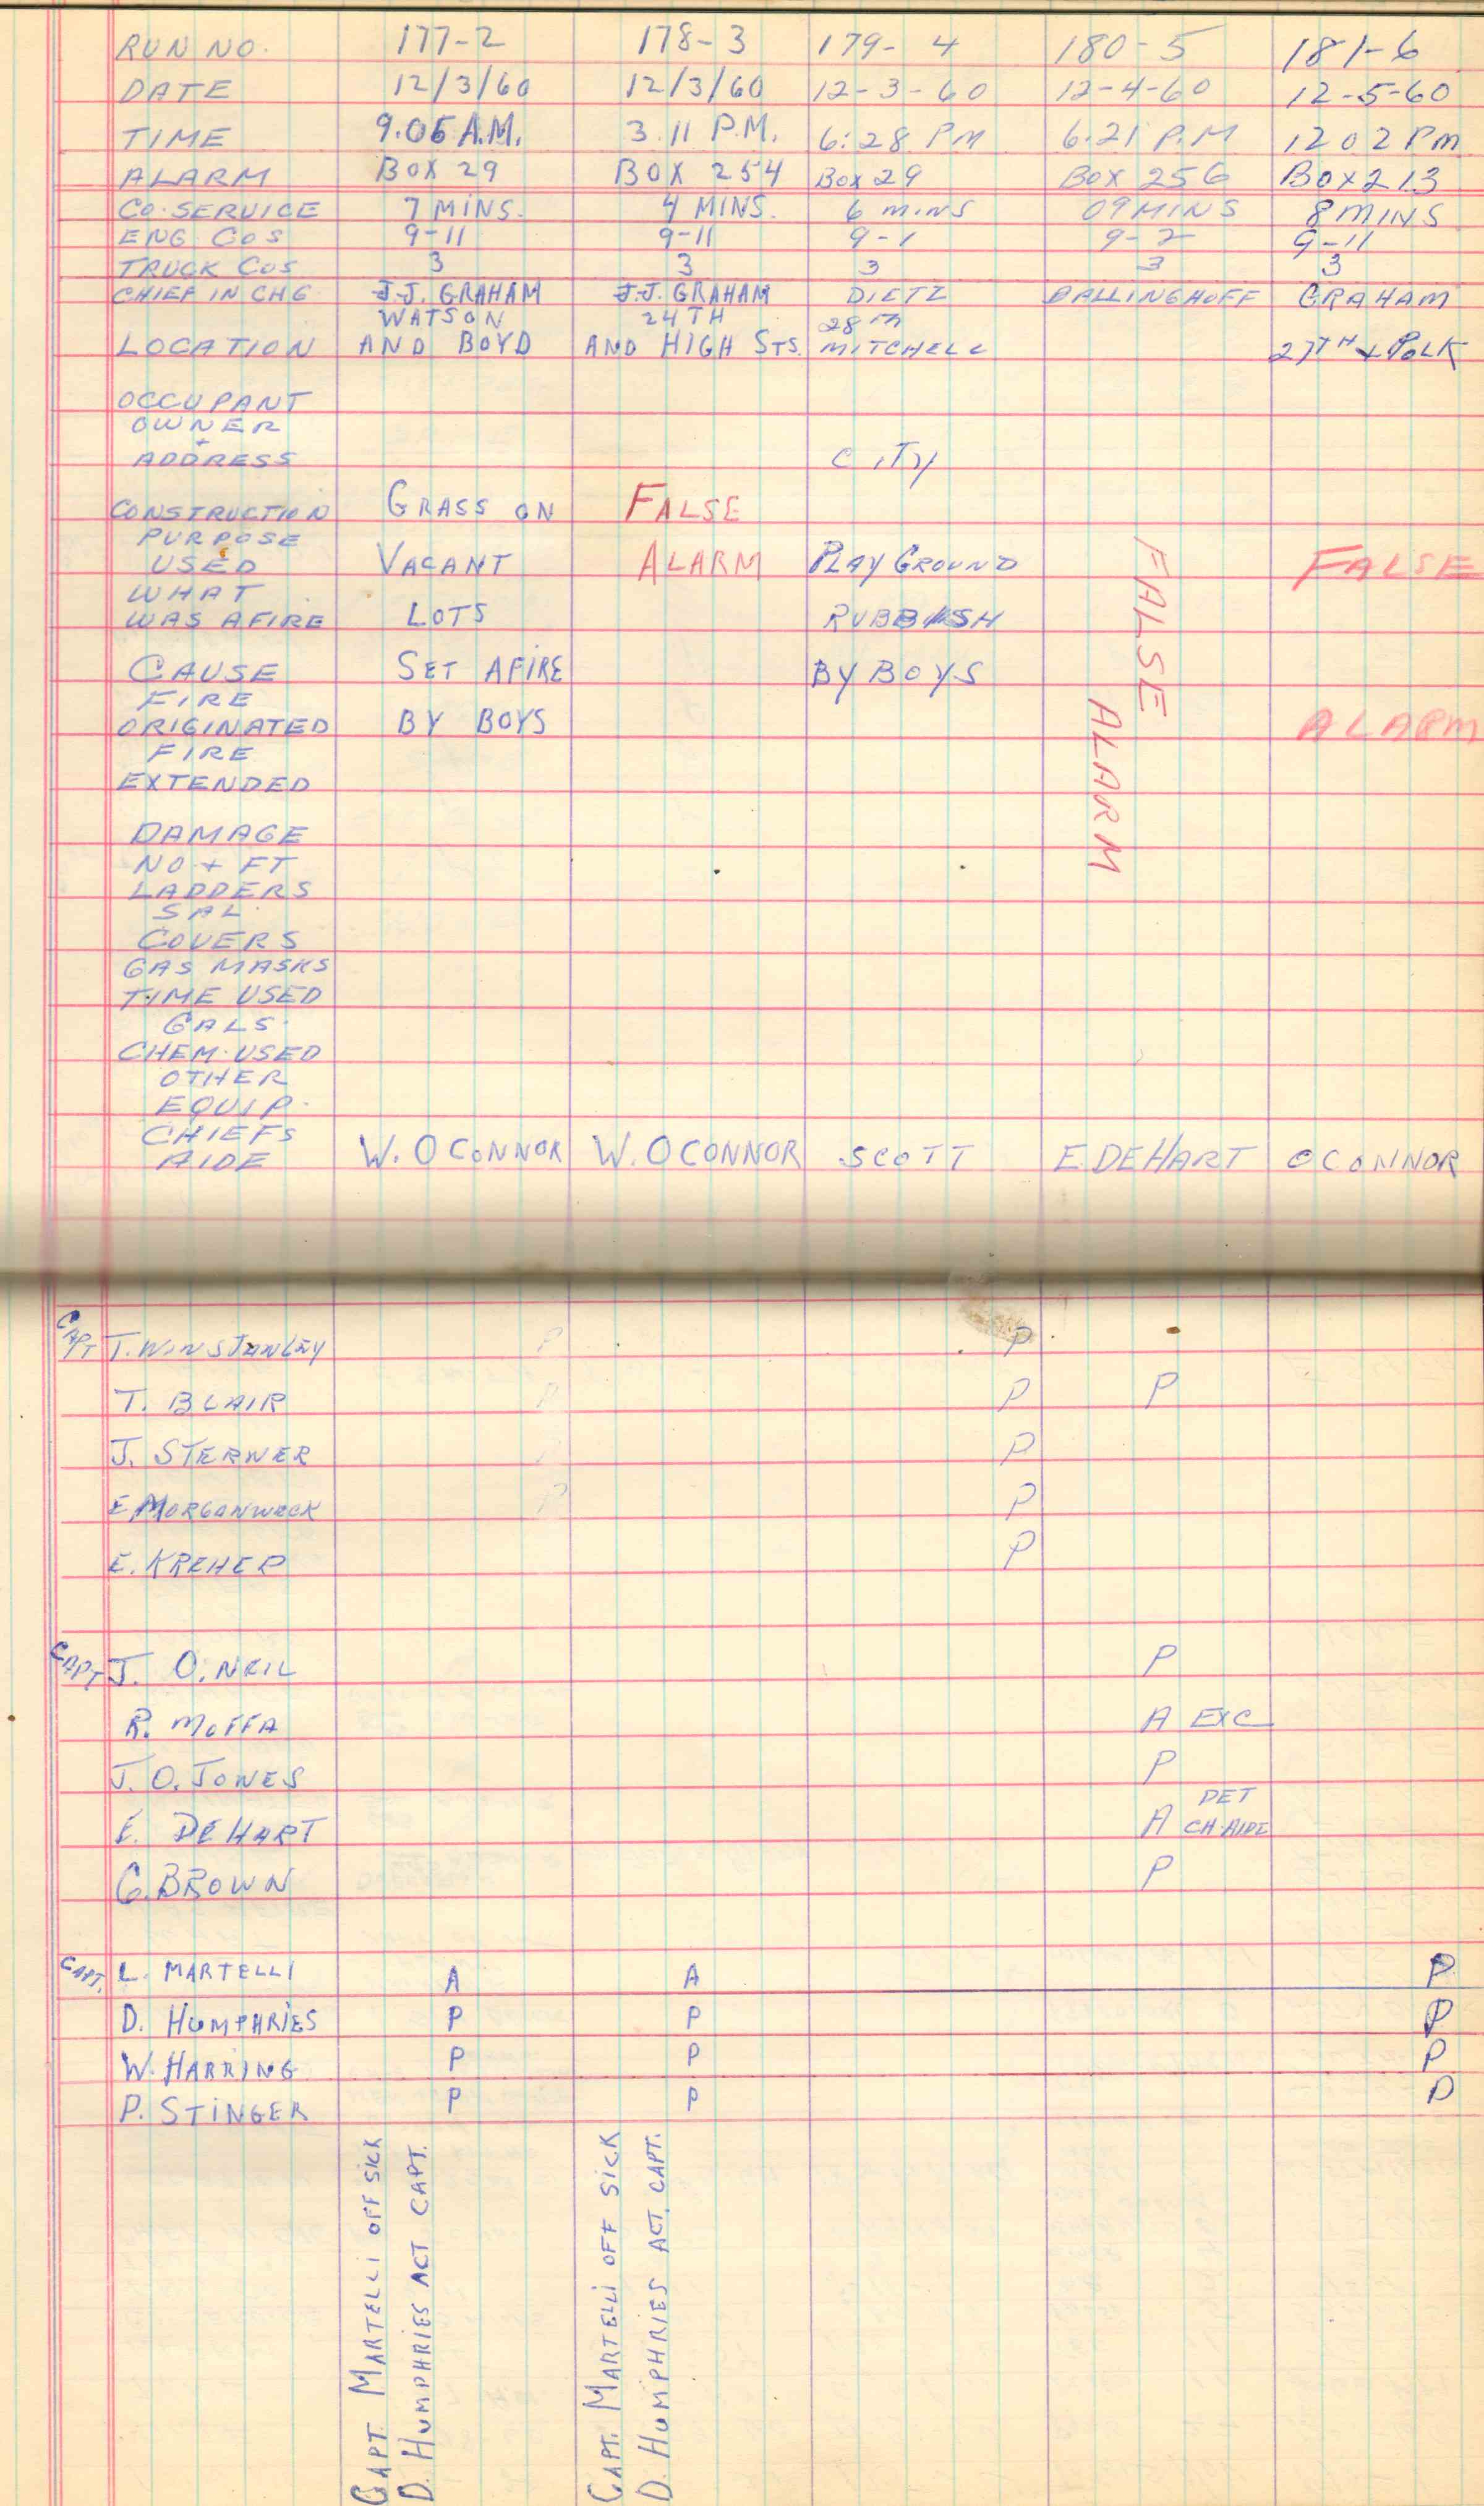 RUN NO. 177-2 178-3 179-4 180-5 181-6
DATE 12/3/60 12/3/60 12-3-60 12-4-60 12-5-60
TIME 9.05 A.M. 3.11 P.M. 6:28 PM 6.21 P.M 1202 PM
ALARM BOX 29 BOX 254 BOX 29 BOX 256 BOX 213
CO. SERVICE 7 MINS. 4 MINS. 6 MINS 09 MINS 8 MINS
ENG. COS 9-11 9-11 9-1 9-2 9-11
TRUCK COS 3 3 3 3 3
CHIEF IN CHG J.J. GRAHAM J.J. GRAHAM DIETZ DALLINGHOFF GRAHAM
WATSON 24TH 28TH
LOCATION AND BOYD AND HIGH STS. MITCHELL 27TH + POLK
OCCUPANT
OWNER
+
ADDRESS CITY
CONSTRUCTION GRASS ON FALSE
PURPOSE
USED VACANT ALARM PLAY GROUND FALSE
WHAT
WAS AFIRE LOTS RUBBISH
CAUSE SET AFIRE BY BOYS
FIRE
ORIGINATED BY BOYS ALARM
FIRE
EXTENDED
FALSE
ALARM
DAMAGE
NO + FT
LADDERS
SAL.
COVERS
GAS MASKS
TIME USED
GALS.
CHEM. USED
OTHER
EQUIP.
CHIEFS
AIDE W. OCONNOR W. OCONNOR SCOTT E. DEHART OCONNOR
CAPT T. WINSTANLEY P P
T. BLAIR P P P
J. STERNER P P
E. MORGANWECK P P
E. KREHER P
CAPT J. O. NEIL P
R. MOFFA A EXC
J. O. JONES P
DET
E. DEHART A CH. AIDE
G. BROWN P
CAPT. L. MARTELLI A A P
D. HUMPHRIES P P P
W. HARRING P P P
P. STINGER P P P
CAPT. MARTELLI OFF SICK
D. HUMPHRIES ACT CAPT.
CAPT. MARTELLI OFF SICK
D. HUMPHRIES ACT. CAPT.